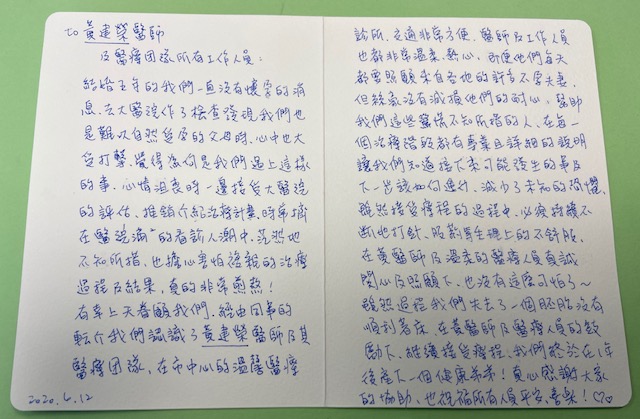 to 黃建榮醫師
及醫療团隊所有工作人員:
結婚五年的我們一直沒有懷孕的消
息,去大醫院作了檢查發現我們也
是難以自然受孕的父母時,心中也大
受打擊,覺得為何是我們遇上這樣
的事,心情沮喪時一邊接受大醫院
的評估、推銷介紹治療計畫,時常擠
在醫院滿滿的看診人潮中,茫然地
不知所措,也擔心害怕後續的治療
過程及結果,真的非常煎熬!
有幸上天眷顧我們,經由同事的
転介我們認識了黃建榮醫師及其
醫療团隊,在市中心的溫馨醫療
2020.6.12
診所,交通非常方便,醫師及工作人員
也都非常溫柔、熱心,即便他們每天
都要照顧來自各地的許多不孕夫妻,
但絲毫沒有減損他們的耐心,幫助
我們這些驚慌不知所措的人,在每一
個治療階段都有專業且詳細的說明
讓我們知道接下來可能發生的事及
下一步該如何進行,減少了未知的恐懼,
雖然接受療程的過程中,必須持續不
斷地打針、服藥等生理上的不舒服,
在黃醫師及溫柔的醫療人員真誠
関心及照顧下,也沒有這麼可怕了~
雖然過程我們失去了一個胚胎沒有
順利著床,在黃醫師及醫療人員的鼓
勵下,繼續接受療程,我們終於在1年
後產下一個健康弟弟!真心感謝大家
的協助,也祝福所有人員平安、喜樂!♡♡